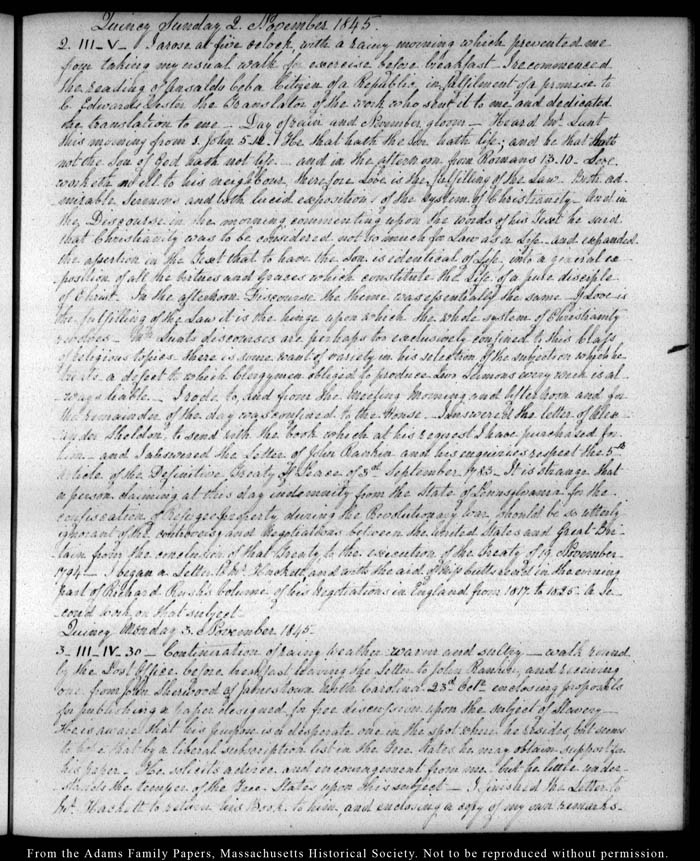 Quincy Sunday 2. November 1845.
2. III_V_ I arose at five oclock with a rainy morning which prevented me
from taking my usual walk for exercise before breakfast. I recommenced
the reading of Ansaldo Ceba Citizen of a Republic, in fulfilment of a promise to
C. Edwards Lester the Translator of the work who sent it to me and dedicated
the translation to me _ Day of rain and November gloom _ Heard Mr Lunt
this morning from 1. John 5.12. He that hath the Son hath life; and he that hath
not the Son of God hath not life. _ and in the afternoon from Romans 13.10. Love
worketh no ill to his neighbour, therefore Love is the fulfilling of the Law. Both ad-
mirable Sermons and both lucid expositions of the System of Christianity _ And in
the Discourse in the morning commenting upon the words of his Text he said
that Christianity was to be considered not so much for Law as a Life _ and expanded
the assertion in the Text that to have the Son is identical of Life into a general ex-
position of all the virtues and Graces which constitute the Life of a pure disciple
of Christ. In the afternoon Discourse the theme was essentially the same _ If Love is
the fulfilling of the Law it is the hinge upon which the whole system of Christianity
revolves _ Mr Lunts discourses are perhaps too exclusively confined to this Class
of religious topics. there is some want of variety in his selection of the subjects on which he
a defect to which Clergymen obliged to produce two Sermons every week is al-
ways liable _ I rode to, and from the meeting Morning and Afternoon and for
the remainder of the day was confined to the House _ I answered the letter of Alex-
ander Sheldon, to send with the book which at his request I have purchased for
him _ and I answered the Letter of John Rankin and his enquiries respect the 5th
article of the Definitive Treaty of Peace of 3d September 1783 _ It is strange that
a person claiming at this day indemnity from the State of Pennsylvania for the
confiscation of Refugee property during the Revolutionary War should be so utterly
ignorant of the controversy and Negotiations between the United States and Great-Bri-
tain from the conclusion of that Treaty to the execution of the Treaty of 19. November
1794 _ I began a Letter to Mr Hackett, and with the aid of Miss Cutts read in the evening
part of Richard Rush's Volume of his Negotiations in England from 1817. to 1825. A Se-
cond work on that subject _
Quincy Monday 3. November 1845.
3. III_IV.30 _ Continuation of rainy weather warm and sultry _ walk round
by the Post Office, before breakfast leaving the Letter to John Rankin, and receiving
one from John Sherwood of Jamestown North Carolina 23d Octr enclosing proposals
for publishing a paper designed for free discussion upon the subject of Slavery _
He is aware that his purpose is a desperate one in the spot where he resides, but seems
to that by a liberal subscription list in the Free States he may obtain support for
his paper _ He solicits advice and encouragement from me but he little under-
stands the temper of the Free-States upon this subject _ I finished the Letter to
Mr Hackett to return his Book to him, and enclosing a copy of my own remarks
From the Adams Family Papers, Massachusetts Historical Society. Not to be reproduced without permission.